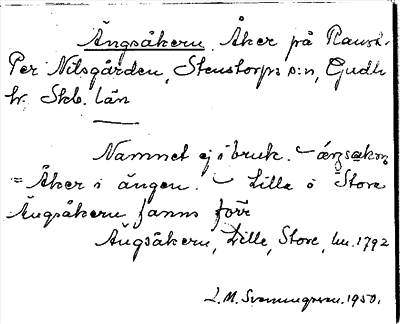 Ängsåkern. Åker på
Per Nilsgården, Stenstorps s:n, Gudh.
hr. Skb. län
Namnet ej i bruk.
= Åker i ängen. Lilla o Stora
Ängsåkern fanns förr
Ängsåkern, Lille, Store, 1792
1950.